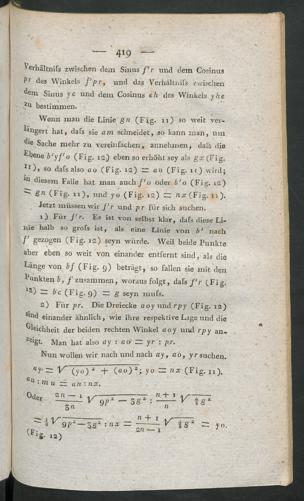 — 419 —
Verhältniſs zwischen dem Sinus f'r und dem Cosinus
pr des Winkels f'pr, und das Verhältniſs zwischen
dem Sinus yc und dem Cosinus ch des Winkels yhc
zu bestimmen.
Wenn man die Linie gn (Fig. 11) so weit ver-
längert hat, daſs sie am schneidet, so kann man, um
die Sache mehr zu vereinfachen, annehmen, daſs die
Ebene b'yf'o (Fig. 12) eben so erhöht sey als gx (Fig.
11), so daſs also ao (Fig. 12) = au (Fig. 11) wird;
in diesem Falle hat man auch f'o oder b'o (Fig. 12)
= gn (Fig. 11), und yo (Fig. 12) = nx (Fig. 11).
Jetzt müssen wir f'r und pr für sich suchen.
1) Für f'r. Es ist von selbst klar, daſs diese Li-
nie halb so groſs ist, als eine Linie von b' nach
f' gezogen (Fig. 12) seyn würde. Weil beide Punkte
aber eben so weit von einander entfernt sind, als die
Länge von bf (Fig. 9) beträgt, so fallen sie mit den
Punkten b, f zusammen, woraus folgt, daſs f'r (Fig.
12) = bc (Fig. 9) = g seyn muſs.
2) Für pr. Die Dreiecke aoy und rpy (Fig. 12)
sind einander ähnlich, wie ihre respektive Lage und die
Gleichheit der beiden rechten Winkel aoy und rpy an-
zeigt. Man hat also ay : ao = yr : pr.
Nun wollen wir nach und nach ay, ao, yr suchen.
ay = √ (yo)² + (ao)²; yo = nx (Fig. 11).
au : mu = an : nx.
Oder (2n − 1)/3n √ 9p² − 3g² : (n + 1)/n √ ¾ g²
= ⅓ √ 9p² − 3g² : nx = (n + 1)/(2n − 1) √ ¾ g² = yo.
(Fig. 12)